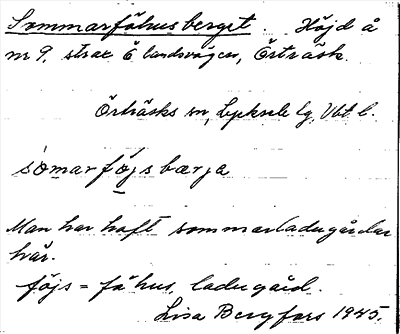 Sommarfähusberget. Höjd å
nr 9, strax Ö landsvägen, Örträsk.
Örträsks sn, Lycksele lg, Vbt. l.
sömarföjsbærja
Man har haft sommarladugårdar
här.
föjs = fähus, ladugård.
Lisa Bergfors 1945.